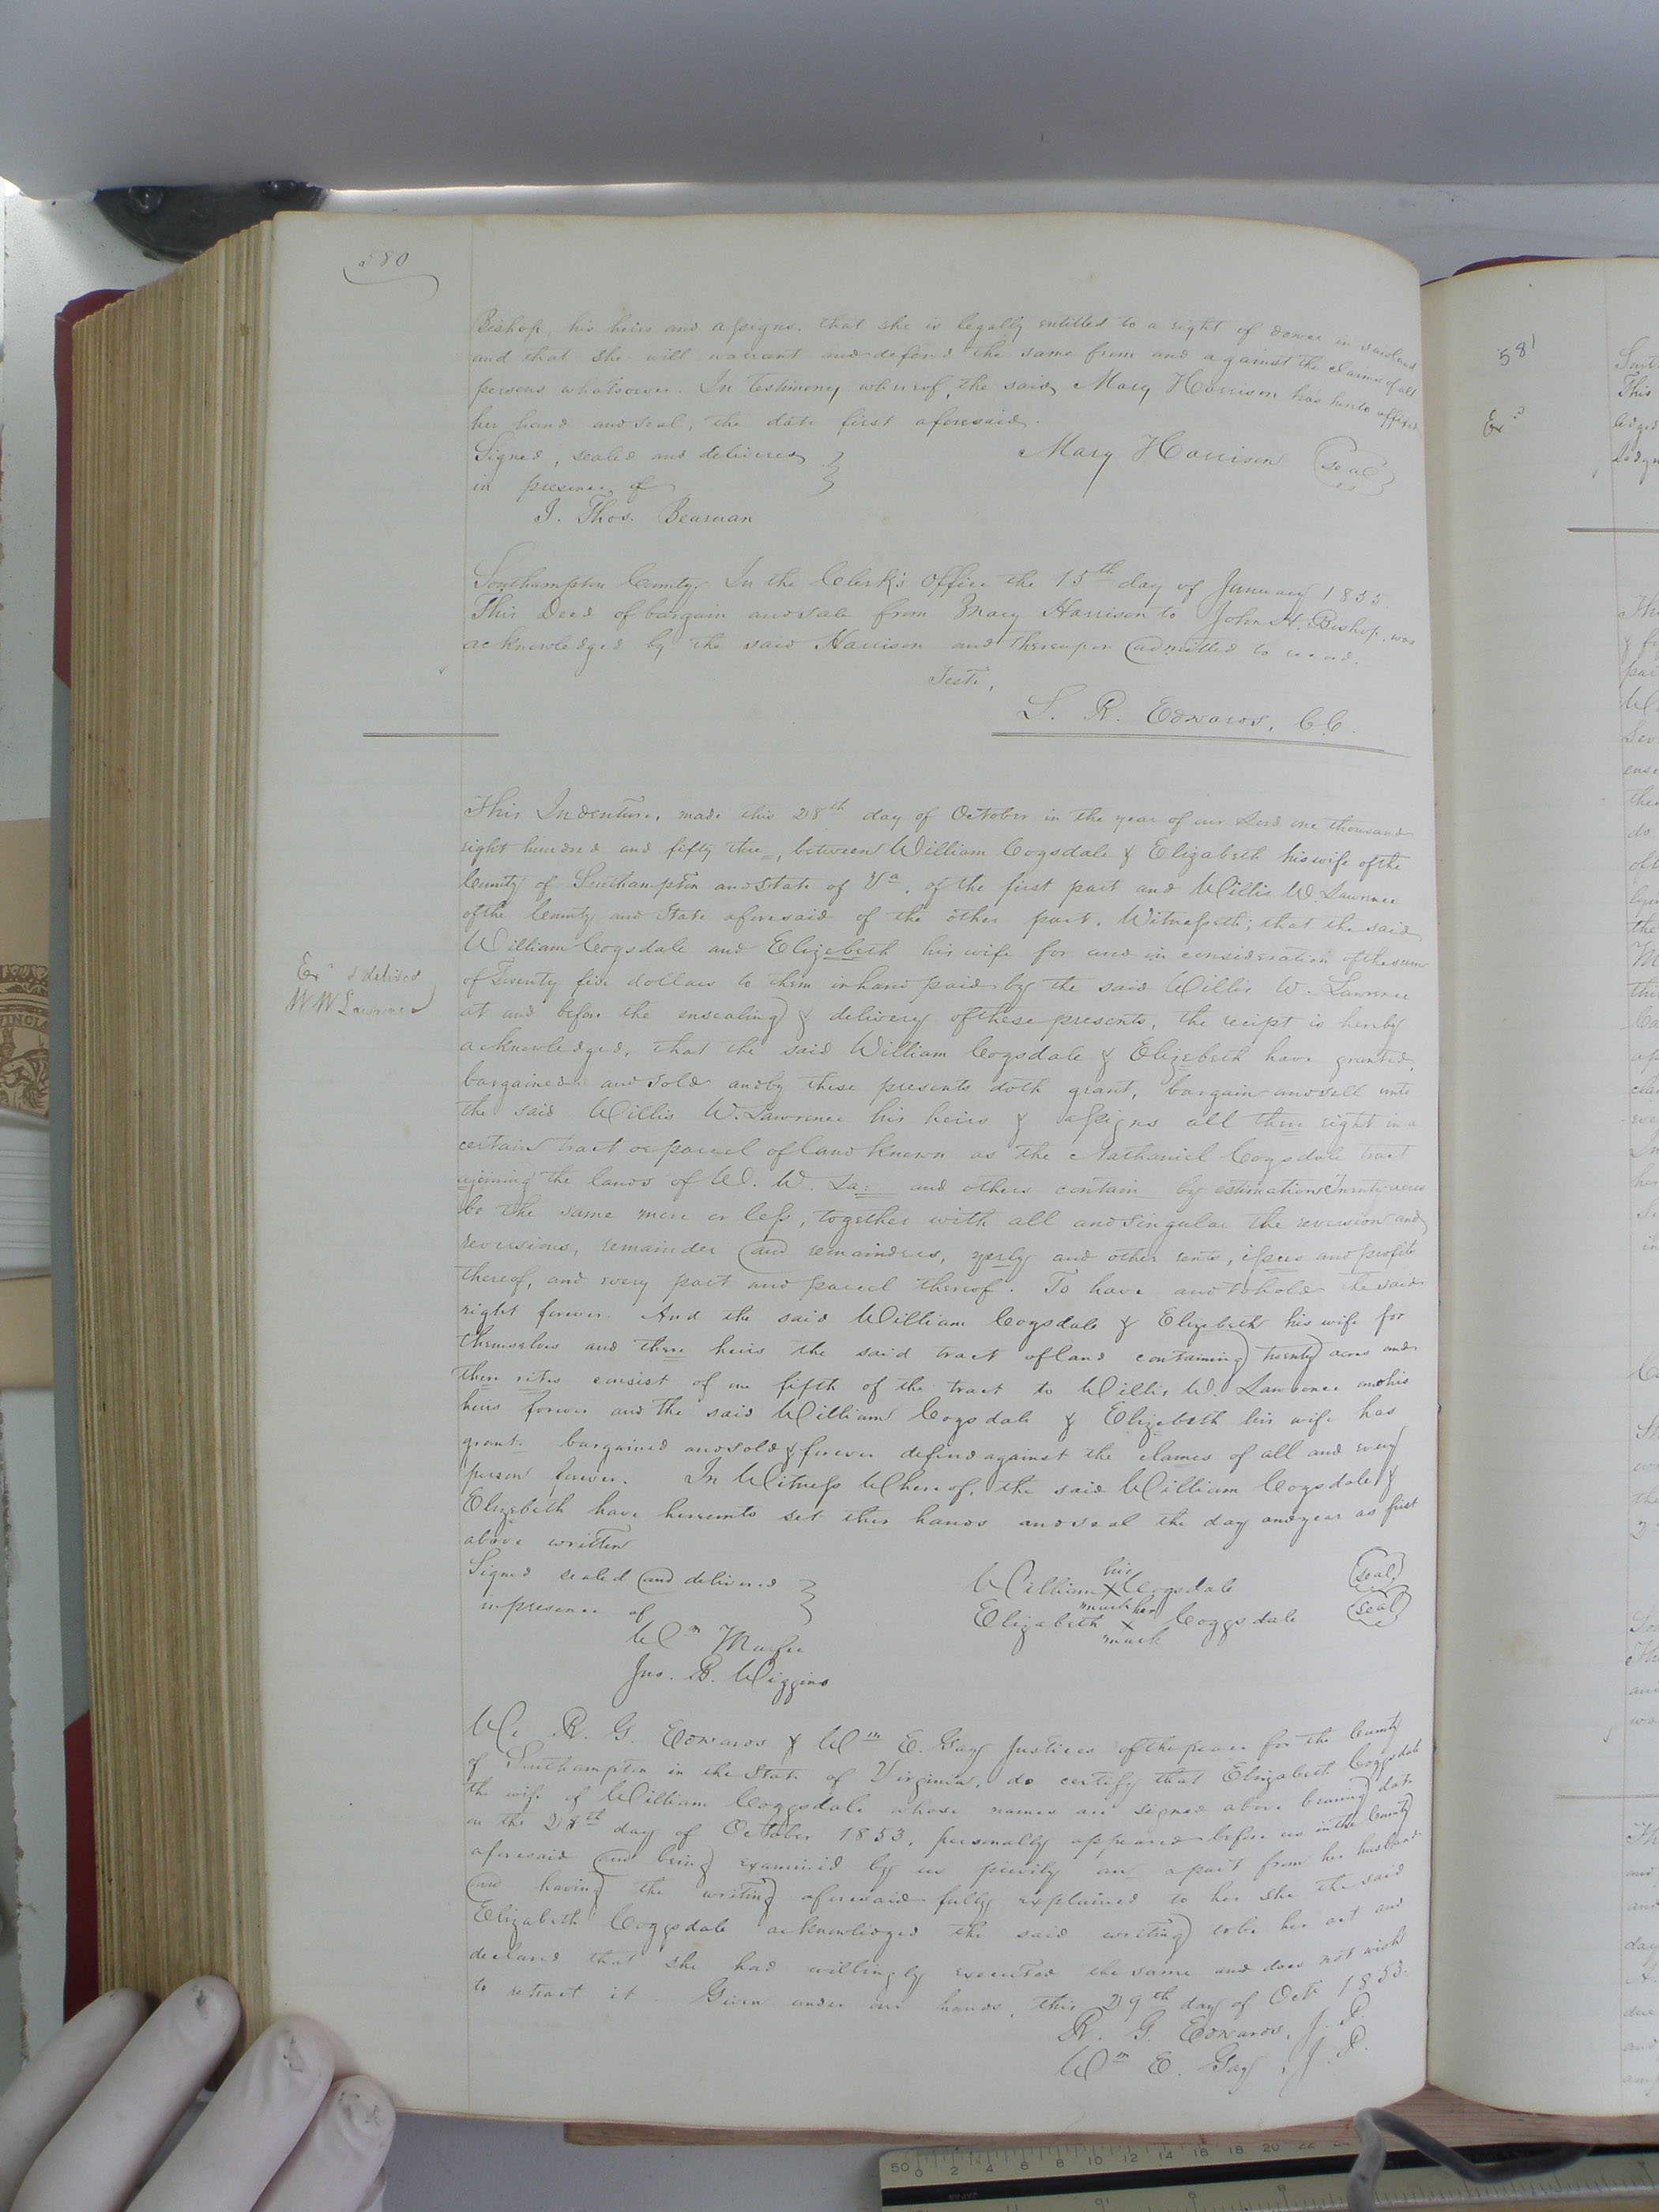 580
Bishop, his heirs and assigns. that she is legally entitled to a right of dower in said land
and that she will warrant and defend the same from and against the claims of all
persons whatsoever. In Testimony whereof, the said Mary Harrison has hereto affixed
her hand and seal, the date first aforesaid.
Signed, sealed and delivered
in presence of
Mary Harrison seal
J. Thos. Bearman
Southampton County. In the Clerk's Office the 15th day of January 1855.
This Deed of bargain and sale from Mary Harrison to John H. Bishop was
acknowledged by the said Harrison and thereupon admitted to record.
Teste,
L. R. Edwards, C.C.
This Indenture, made this 28th day of October in the year of our Lord one thousand
eight hundred and fifty three, between William Cogsdale & Elizabeth his wife of the
County of Southampton and State of Va. of the first part and Willis W. Lawrence
of the County and State aforesaid of the other part. Witnesseth; that the said
William Cogsdale and Elizebeth his wife for and in consideration of the sum
Exd & delived
W W Lawrence
of Twenty five dollars to them in hand paid by the said Willis W. Lawrence
at and before the ensealing & delivery of these presents, the recipt is hereby
acknowledged, that the said William Cogsdale & Elizebeth have granted,
bargained and sold and by these presents doth grant, bargain and sell unto
the said Willis W. Lawrence his heirs & assigns all there right in a
certain tract or parcel of land known as the Nathaniel Cogsdale tract
ajoining the lands of W. W. La: and others contain by estimation twenty acres
be the same more or less, together with all and singular the reversion and
reversions, remainder and remainders, yerly and other rents, issues and profits
thereof, and every part and parcel thereof. To have and to hold the said
right forever. And the said William Cogsdale & Elizebeth his wife for
themselves and there heirs the said tract of land containing twenty acres and
there rites consist of one fifth of the tract to Willis W. Lawrence and his
heirs forever and the said William Cogsdale & Elizebeth his wife has
grant. bargained and sold & forever defend against the clames of all and every
person forever. In Witness Whereof, the said William Cogsdale &
Elizebeth have hereunto set ther hands and seal the day and year as first
above written
Signed sealed and delivered
in presence of
his
William X Cogsdale seal
mark her
Elizabeth X Coggsdale seal
mark
Wm
Jno. B. Wiggins
We R. G. Edwards & Wm E. Gay Justices of the peace for the County
of Southampton in the State of Virginia, do certify that Elizabeth Coggsdale
the wife of William Coggsdale whose names are signed above bearing date
on the 28th day of October 1853, personally appeared before us in the County
aforesaid and being examined by us privily and apart from her husband
and having the writing aforesaid fully explained to her she the said
Elizabeth Coggsdale acknowledged the said writing to be her act and
declared that she had willingly executed the same and does not wish
to retract it. Given under our hands, this 29th day of Oct 1853.
R. G. Edwards, J. P.
Wm E. Gay, J. P.
581
Exd
50 0 2 4 6 8 10 12 14 16 18 20 22